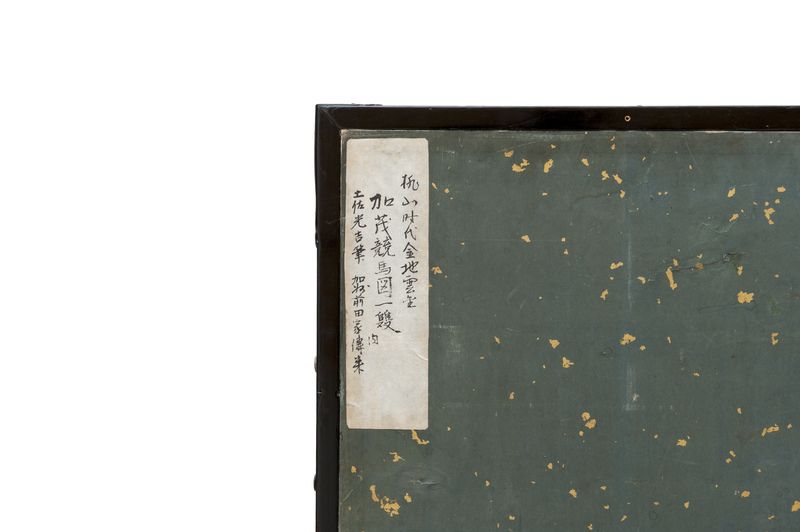 桃山时代金地雲金
加茂競馬図一雙内
土佐光吉筆 加州前田家傳来